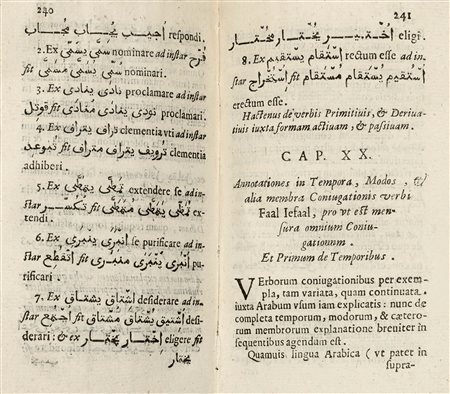 240
اجيب يجاب مجاب respondi.
2. Ex سمى يسمى nominare ad instar فرح
fit سمى يسمى مسمى nominari.
3. Ex نادى ينادى proclamare ad instar
قوتل fit نودى ينادى منادى proclamari.
4. Ex clementia vti ad instar
fit clementia
adhiberi.
5. Ex تمطى يتمطى extendere se ad in-
star تكسر fit تمطى يتمطى متمطى ex-
tendi.
6. Ex انبرى ينبرى se purificare ad in-
star انقطع fit انبرى ينبرى منبرى pu-
rificari.
7. Ex اشتاق يشتاق desiderare ad in-
star اجتمع fit اشتيق يشتاق مشتاق desi-
derari: & ex اختار يختار eligere fit
يختار
241
اختير يختار مختار eligi.
8. Ex استقام يستقيم rectum esse ad in-
star استخراج fit استقيم يستقام مستقام
erectum esse.
Hactenus de verbis Primitiuis, & Deriua-
tiuis iuxta formam actiuam, & passiuam.
CAP. XX.
Annotationes in Tempora, Modos, &
alia membra Coniugationis verbi
Faal Iefaal, pro vt est men-
sura omnium Coniu-
gationum.
Et Primum de Temporibus.
Verborum coniugationibus per exem-
pla, tam variata, quam continuata
iuxta Arabum vsum iam explicatis: nunc de
completa temporum, modorum, & cætero-
rum membrorum explanatione breniter in
sequentibus agendum est.
Quamuis lingua Arabica (vt patet in
supra-